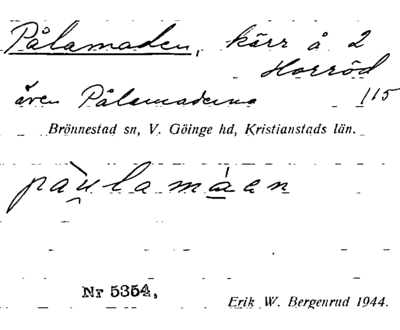 Pålamaden, kärr å 2
Horröd
även Pålamaderna 115
Brönnestad sn, V. Göinge hd, Kristianstads län.
pàu̯lamáen
Nr 5354,
Erik W. Bergenrud 1944.